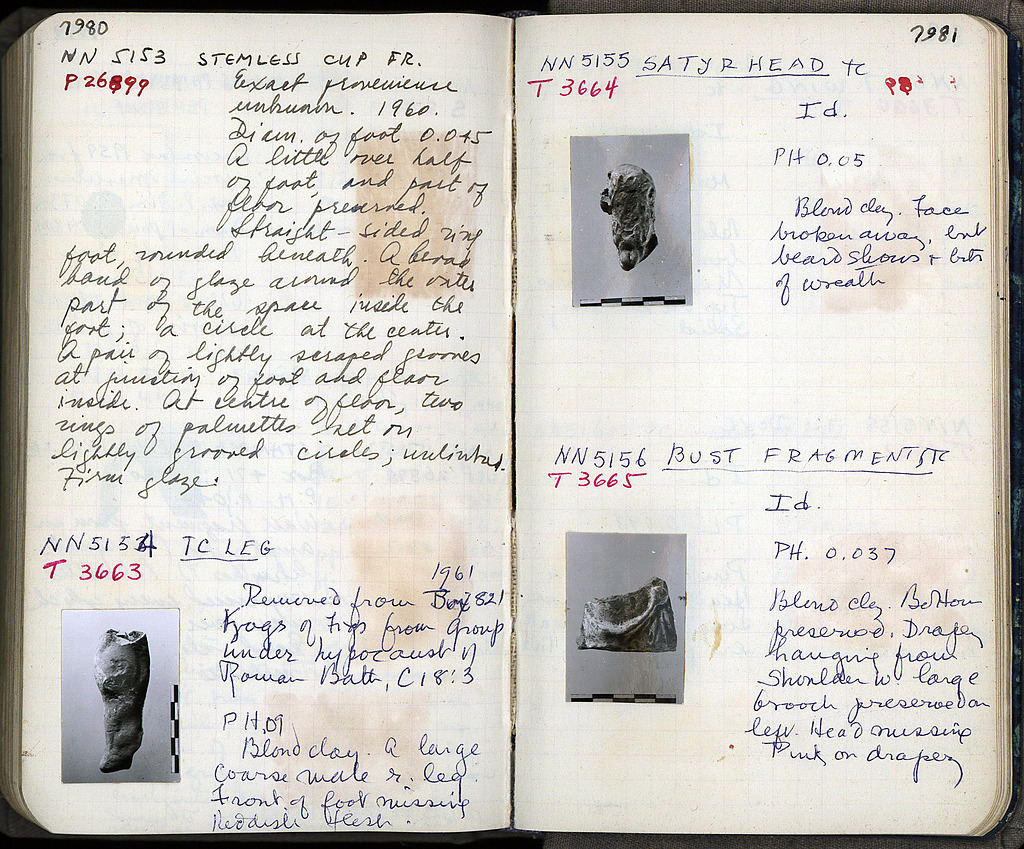 7980
NN 5153 STEMLESS CUP FR.
P 26899
Exact provenience
unknown. 1960.
Diam. of foot 0.045
A little over half
of foot and part of
floor preserved.
Straight-sided ring
foot, rounded beneath. A broad
band of glaze around the outer
part of the space inside the
foot; a circle at the center.
A pair of lightly scraped grooves
at junction of foot and floor
inside. At centre of floor, two
rings of palmettes set on
lightly grooved circles; unlinked.
Firm glaze.
NN 5154 TC LEG
T 3663
1961
Removed from Box 821
Frags of Figs from Group
under hypocaust of
Roman Bath, C 18:3
PH .09
Blond clay. A large
coarse male r. leg.
Front of foot missing
Reddish flesh.
7981
NN 5155 SATYR HEAD TC
T 3664
Id.
PH 0.05
Blond clay. Face
broken away, but
beard shows + bits
of wreath
NN 5156 BUST FRAGMENT TC
T 3665
Id.
PH. 0.037
Blond clay. Bottom
preserved. Drapery
hanging from
shoulder w. large
brooch preserved on
left. Head missing
Pink on drapery